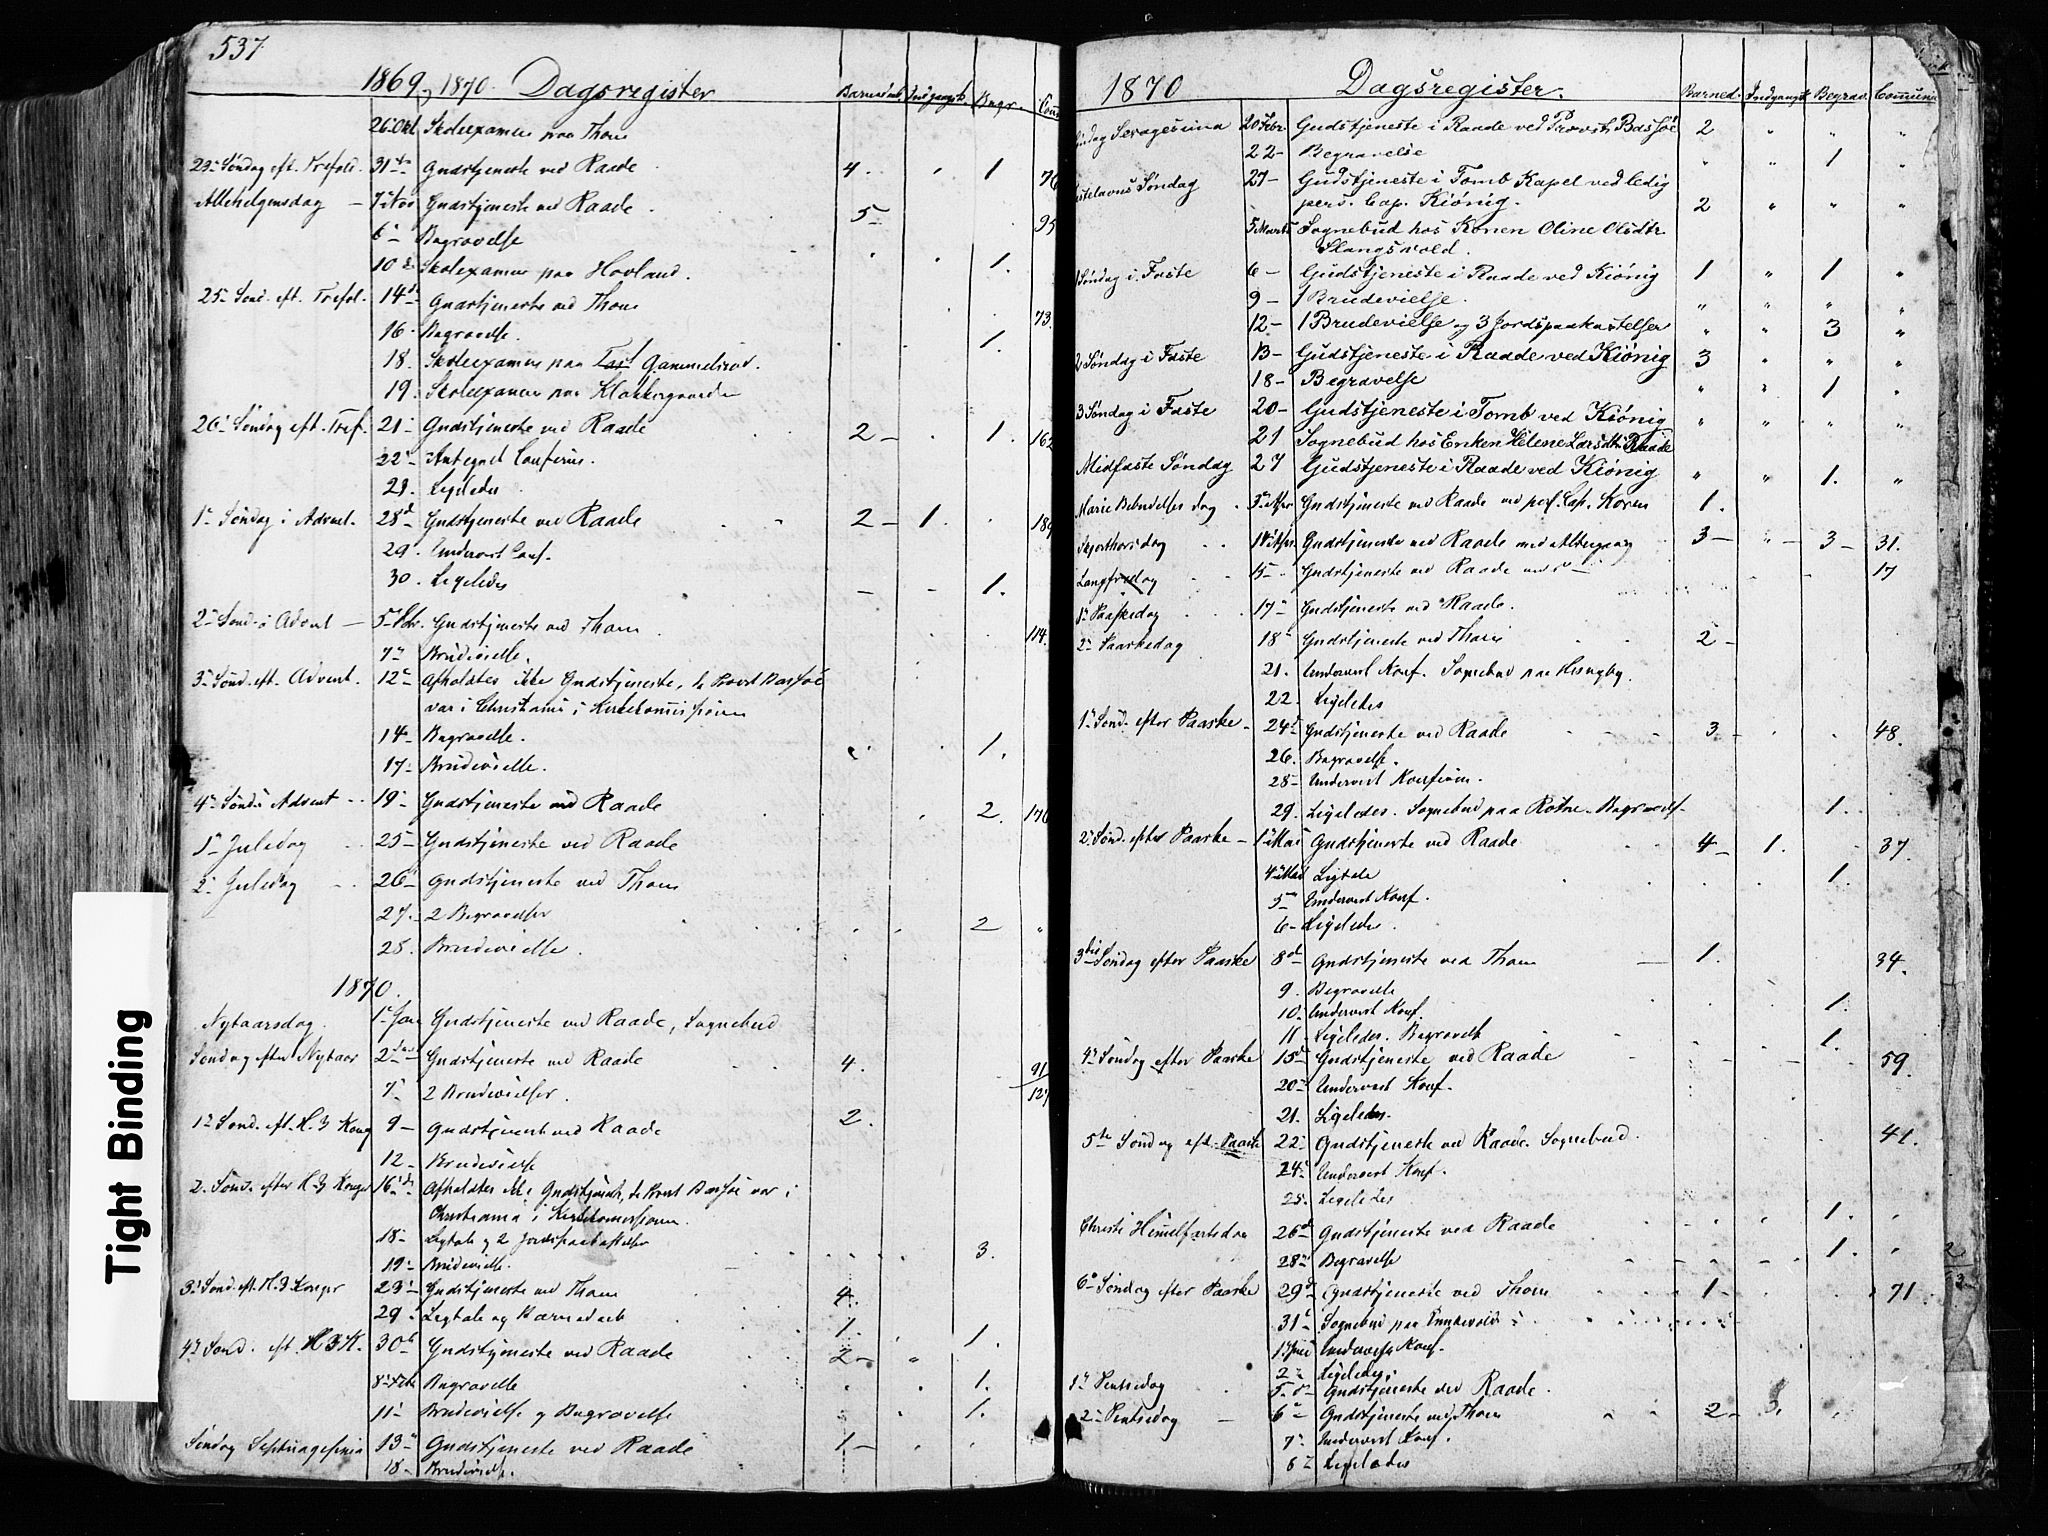 537
1869, 1870. Dagsregister
Barnedaab Indgangsk. Begr. Com
26 Okt Skoleexamen paa Thom
23de Søndag eft. Trefold. 31te Gudstjeneste ved Raade 4. " 1 76
Allehelgensdag 7de Nov Gudstjeneste ved Raade 5 95
6 Begravelse
10 Skoleexamen paa Hovland. 1.
25 Sønd. eft. Trefol. 14d Gudstjeneste ved Thom 73.
16. Begravelse. 1.
18. Skoleexamen paa Gammelsrød.
19. Skoleexamen paa Klokkergaarden
26 Søndag eft. Tref. 21 Gudstjeneste ved Raade 2 1. 162
22 Antegnet Confirm.
29. Ligeledes
1e Søndag i Advent. 28d Gudstjeneste ved Raade 2 1. 189
29. Undervist Conf.
30. Ligeledes 1.
2 Sønd. i Advent 5 Dbr. Gudstjeneste ved Thom. 114.
7 Brudevielse.
3 Sønd. eft. Advent. 12 Afholdtes ikke Gudstjeneste, da Provst Bassøe
var i Christiania i Kirkekomissionen
14 Begravelse. 1.
17 Brudevielse.
4 Sønd i Advent 19 Gudstjeneste ved Raade 2. 176
1e Juledag 25 Gudstjeneste ved Raade
2 Juledag 26 Gudstjeneste ved Thom
27. 2 Begravelser 2 "
28. Brudevielse
1870.
Nytaarsdag. 1 Jan Gudstjeneste ved Raade, Sognebud
Søndag efter Nytaar 2 Gudstjeneste ved Raade 4. 91
7 2 Brudevielser. 127
1e Sønd. eft. H. 3 Kong 9 Gudstjenest ved Raade 2.
12 Brudevielse
2. Sønd. efter H. 3 Konger 16 Afholdtes ikke Gudstjeneste, da Provst Bassøe var i
Christiania i Kirkekomissionen.
18 Ligtale og 2 Jordspaakastelser 3.
19 Brudevielse.
3 Sønd. eft. H. 3 Konger 23 Gudstjeneste ved Thom 4.
29 Ligtale og Barnedaab 1. 1.
4 Sønd. eft. H 3 K. 30 Gudstjeneste ved Raade 2 "
8 Feb Begravelse 1.
11 Brudevielse og Begravelse 1.
Søndag Septuagesima 13 Gudstjeneste ved Raade 1
18 Brudevielse.
1870 Dagsregister.
Barned. Indgangsk. Begrav. Communi
Søndag Sexagesima 20 Febr Gudstjeneste i Raade ved Provst Bassøe 2 " " "
22 Begravelse " " 1 "
Fastelavns Søndag 27 Gudstjeneste i Tomb Kapel ved ledig
pers. Cap. Kiönig. 2 " " "
5 Marts Sognebud hos Konen Oline Olsdtr
Slangsvold.
1 Søndag i Faste 6 Gudstjeneste i Raade ved Kiönig 1 " 1 "
9 1 Brudevielse. " " " "
12 1 Brudevielse og 3 Jordspaakastelser " " 3 "
2 Søndag i Faste 13 Gudstjeneste i Raade ved Kiönig 3 " " "
18 Begravelse " " 1 "
3 Søndag i Faste 20 Gudstjeneste i Tomb ved Kiönig " " " "
21 Sognebud hos Enken Helene Larsdtr Raade
Midfaste Søndag 27 Gudstjeneste i Raade ved Kiönig " " 1. "
Marie Bebudelses dag 3 Apr Gudstjeneste ved Raade ved pers. Cap. Koren 1.
Skjærthorsdag 14 Apr. Gudstjeneste ved Raade med Altergang 3 " 3 31.
Langfredag 15 Gudstjeneste ved Raade 17
1e Paaskedag 17 Gudstjeneste ved Raade.
2 Paaskedag 18 Gudstjeneste ved Thom 2
21. Undervist Konf. Sognebud paa
22. Ligeledes
1 Sønd. efter Paaske 24 Gudstjeneste ved Raade 3 48.
26. Begravelse.
28 Undervist Konfirm.
29. Ligeledes. Sognebud paa Rotne. Begravels 1.
2 Sønd. efter Paaske 1 Mai Gudstjeneste ved Raade 4 1. 37.
4 Mai Ligtale 1.
5 Undervist Konf.
6 Ligeledes.
3die Søndag efter Paaske 8de Gudstjeneste ved Thom 1. 34.
9. Begravelse
10. Undervist Konf. 1.
11 Ligeledes. Begravelse 1.
4 Søndag efter Paaske 15d Gudstjeneste ved Raade 59.
20 Undervist Konf.
21. Ligeledes.
5te Søndag eft. Paaske 22 Gudstjeneste ved Raade. Sognebud. 41.
24 Undervist Konf.
25. Ligeledes
Christi Himmelfartsdag 26d Gudstjeneste ved Raade 1.
28 Begravelse 1.
6 Søndag efter Paaske 29d Gudstjeneste ved Thom 1 71.
31 Sognebud paa
1 Juni Undervist Konf.
2 Ligeledes.
1e Pintsedag 5 Gudstjeneste ved Raade.
2 Pintsedag 6 Gudstjeneste ved Thom 2
7 Undervist Konf.
8 Ligeledes
Tight Binding